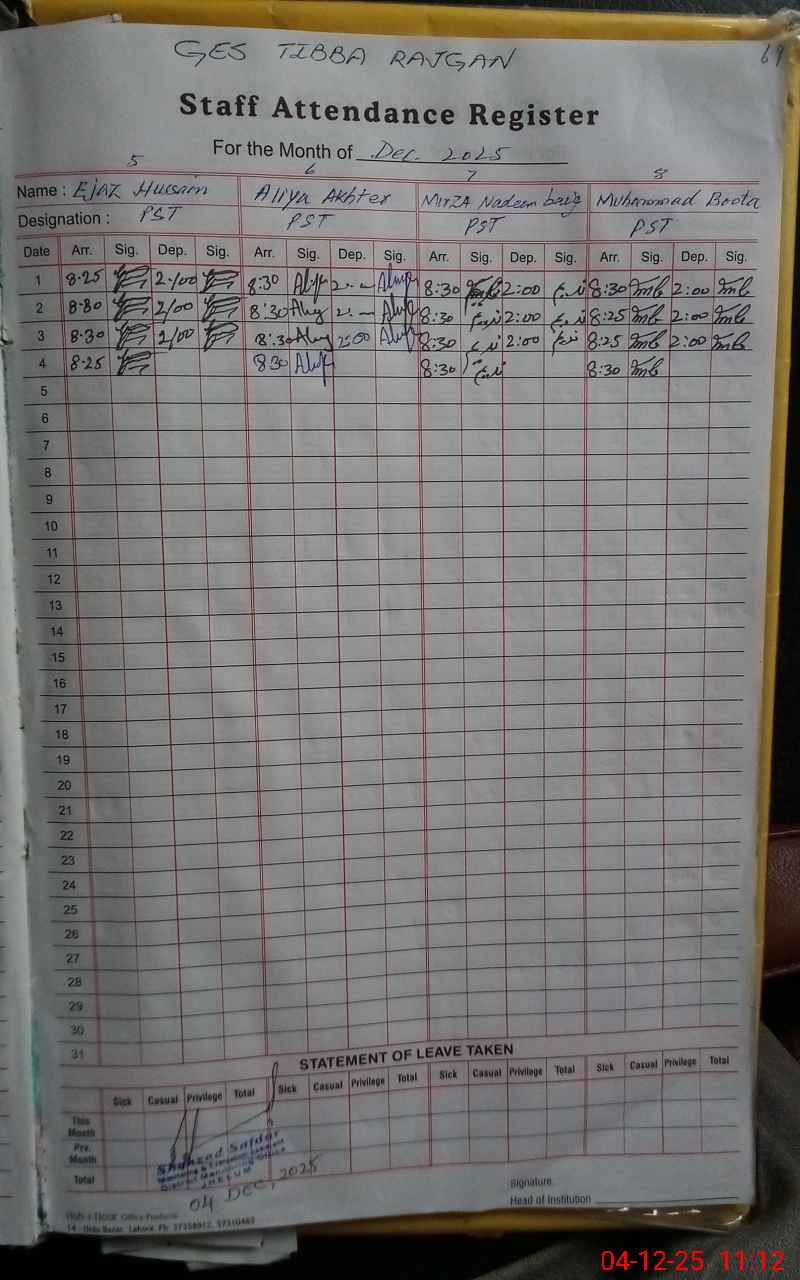 69
GES TIBBA RAJGAN
Staff Attendance Register
For the Month of Dec. 2025
5 6 7 8
Name : Ejaz Hussain Aliya Akhter Mirza Nadeem baig Muhammad Boota
Designation : PST PST PST PST
Date Arr. Sig. Dep. Sig. Arr. Sig. Dep. Sig. Arr. Sig. Dep. Sig. Arr. Sig. Dep. Sig.
1 8-25 2-/00 8:30 8:30 2:00 8:30 2:00
2 8-30 2/00 8:30 8:30 2:00 8:25 2:00
3 8-30 2/00 8:30 2:00 8:30 2:00 8:25 2:00
4 8-25 8:30 8:30 8:30
5
6
7
8
9
10
11
12
13
14
15
16
17
18
19
20
21
22
23
24
25
26
27
28
29
30
31
STATEMENT OF LEAVE TAKEN
Sick Casual Privilege Total Sick Casual Privilege Total Sick Casual Privilege Total Sick Casual Privilege Total
This Month
Prv. Month
Total
Shahzad Safdar
JHELUM
04 DEC, 2025
Signature.
Head of Institution
14 - Urdu Bazar, Lahore. Ph:
04-12-25 11:12